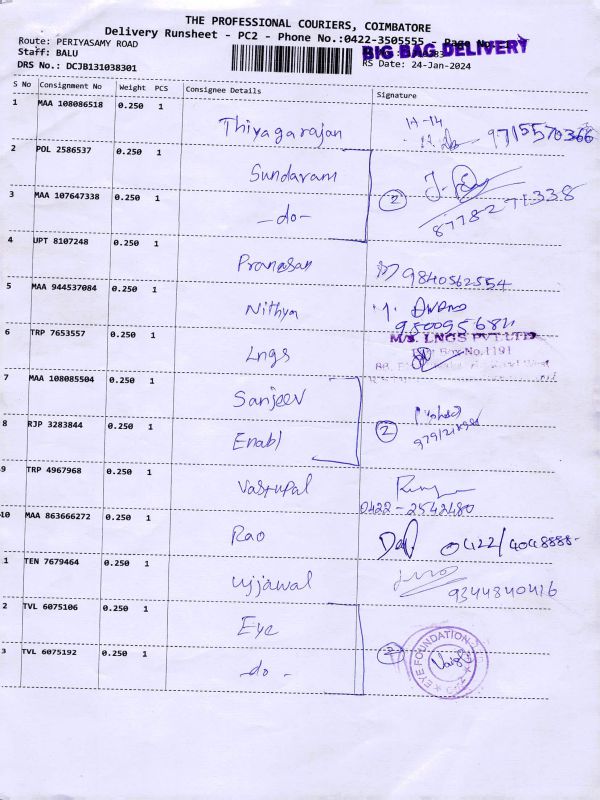 THE PROFESSIONAL COURIERS, COIMBATORE
Delivery Runsheet - PC2 - Phone No.:0422-3505555 - Page No
Route: PERIYASAMY ROAD
BIG BAG DELIVERY
Staff: BALU
RS Date: 24-Jan-2024
DRS No.: DCJB131038301
S No Consignment No Weight PCS Consignee Details Signature
1 MAA 108086518 0.250 1 Thiyagarajan H-14 9715570366
2 POL 2586537 0.250 1 Sundaram
3 MAA 107647338 0.250 1 -do- 2 8778271338
4 UPT 8107248 0.250 1 Pranesan 9840562554
5 MAA 944537084 0.250 1 Nithya
6 TRP 7653557 0.250 1 Lngs M/S. LNGS PVT LTD
7 MAA 108085504 0.250 1 Sanjeev
8 RJP 3283844 0.250 1 Enabl 2
9 TRP 4967968 0.250 1 Vastupal 0422-2542480
10 MAA 863666272 0.250 1 Rao 0422/4048888-
1 TEN 7679464 0.250 1 Ujjawal 9344840416
2 TVL 6075106 0.250 1 Eye
3 TVL 6075192 0.250 1 -do- EYE FOUNDATION